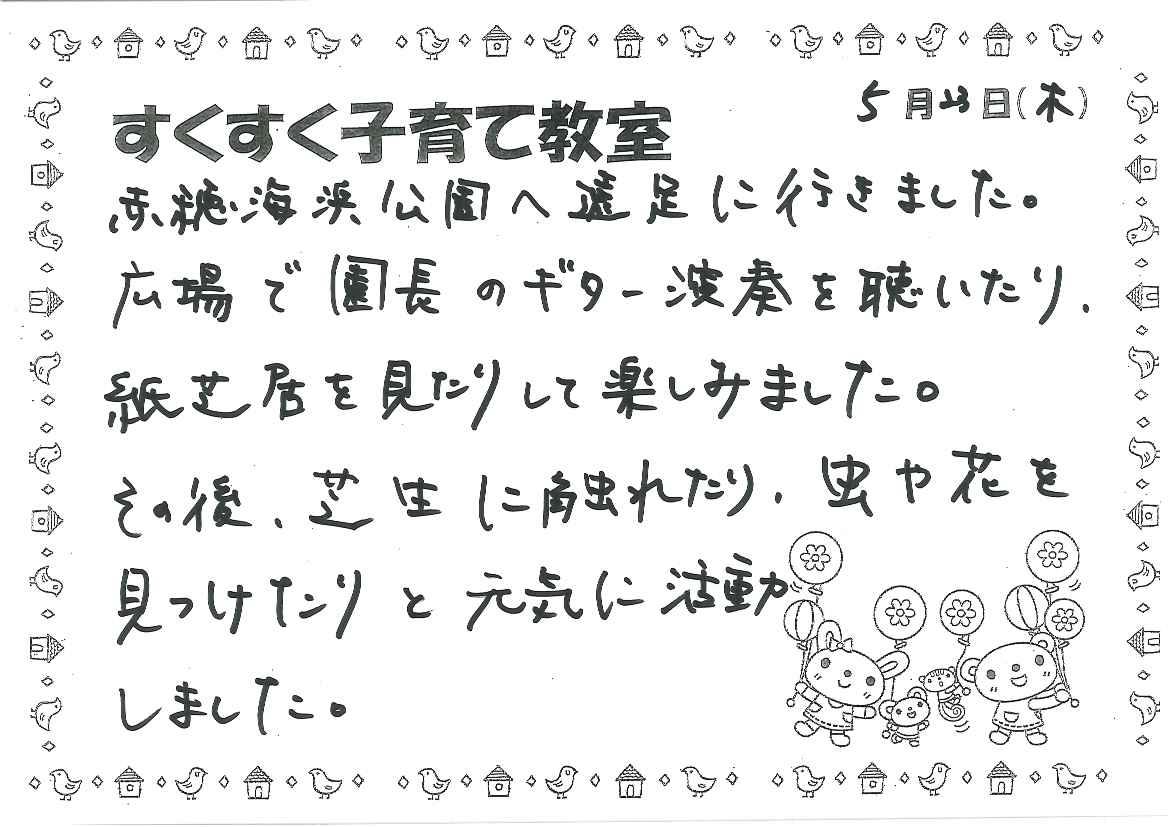 5月23日(木)
すくすく子育て教室
赤穂海浜公園へ遠足に行きました。
広場で園長のギター演奏を聴いたり、
紙芝居を見たりして楽しみました。
その後、芝生に触れたり、虫や花を
見つけたりと元気に活動
しました。